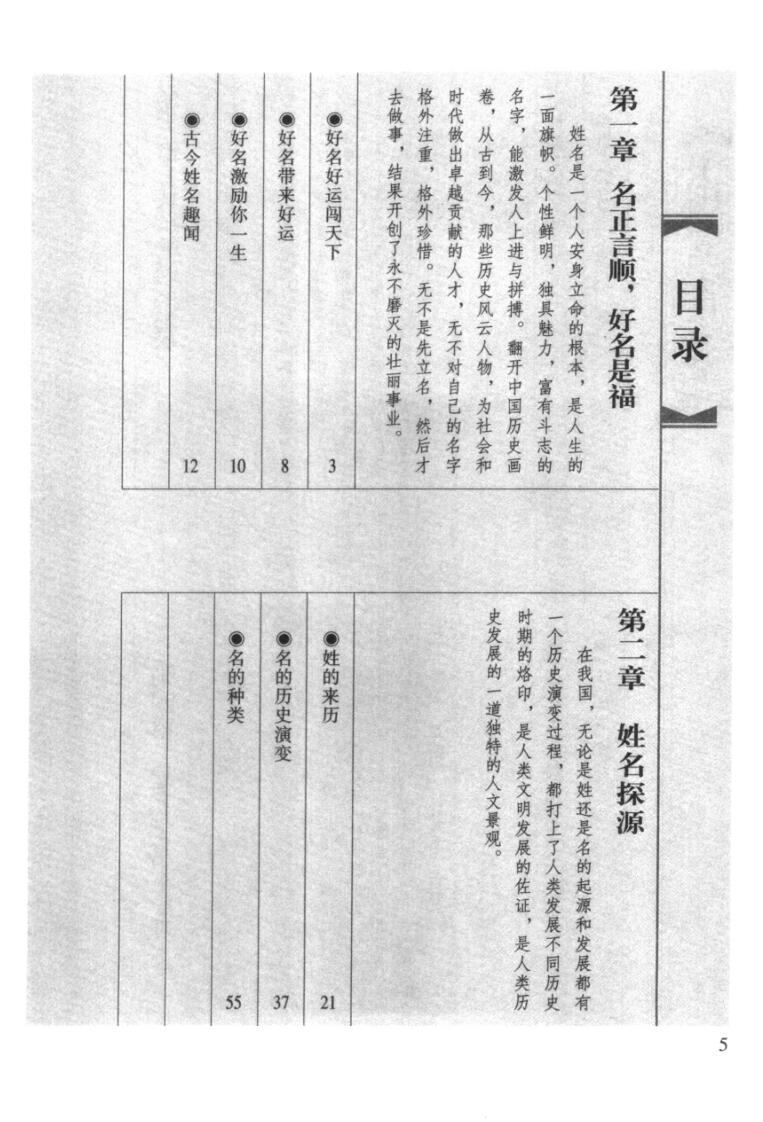 目录
第一章 名正言顺，好名是福
姓名是一个人安身立命的根本，是人生的
一面旗帜。个性鲜明，独具魅力，富有斗志的
名字，能激发人上进与拼搏。翻开中国历史画
卷，从古到今，那些历史风云人物，为社会和
时代做出卓越贡献的人才，无不对自己的名字
格外注重，格外珍惜。无不是先立名，然后才
去做事，结果开创了永不磨灭的壮丽事业。
◉好名好运闯天下 3
◉好名带来好运 8
◉好名激励你一生 10
◉古今姓名趣闻 12
第二章 姓名探源
在我国，无论是姓还是名的起源和发展都有
一个历史演变过程，都打上了人类发展不同历史
时期的烙印，是人类文明发展的佐证，是人类历
史发展的一道独特的人文景观。
◉姓的来历 21
◉名的历史演变 37
◉名的种类 55
5